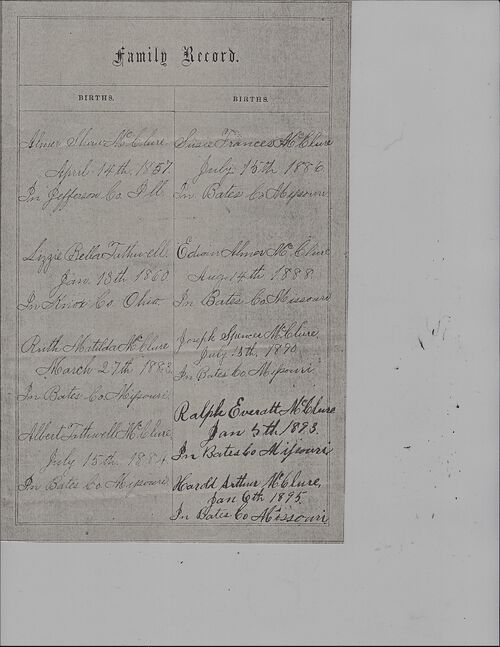 Family Record.
BIRTHS.
Almer Shaw McClure
April 14th 1857.
In Jefferson Co Ill
Lizzie Bella Tathwell.
Jan. 13th 1860
In Knox Co, Ohio.
Ruth Matilda McClure
March 27th 1883.
In Bates Co. Missouri.
Albert Tathwell McClure
July 15th 1884
In Bates Co Missouri
BIRTHS.
Susie Frances McClure
July 15th 1886
In Bates Co Missouri
Edwin Almer McClure
Aug 14th 1888
In Bates Co Missouri
Joseph Spencer McClure
July 1890
In Bates Co Missouri
Ralph Everatt McClure
Jan 5th 1893.
In Bates Co Missouri
Harold Arthur McClure,
Jan 6th 1895.
In Bates Co Missouri